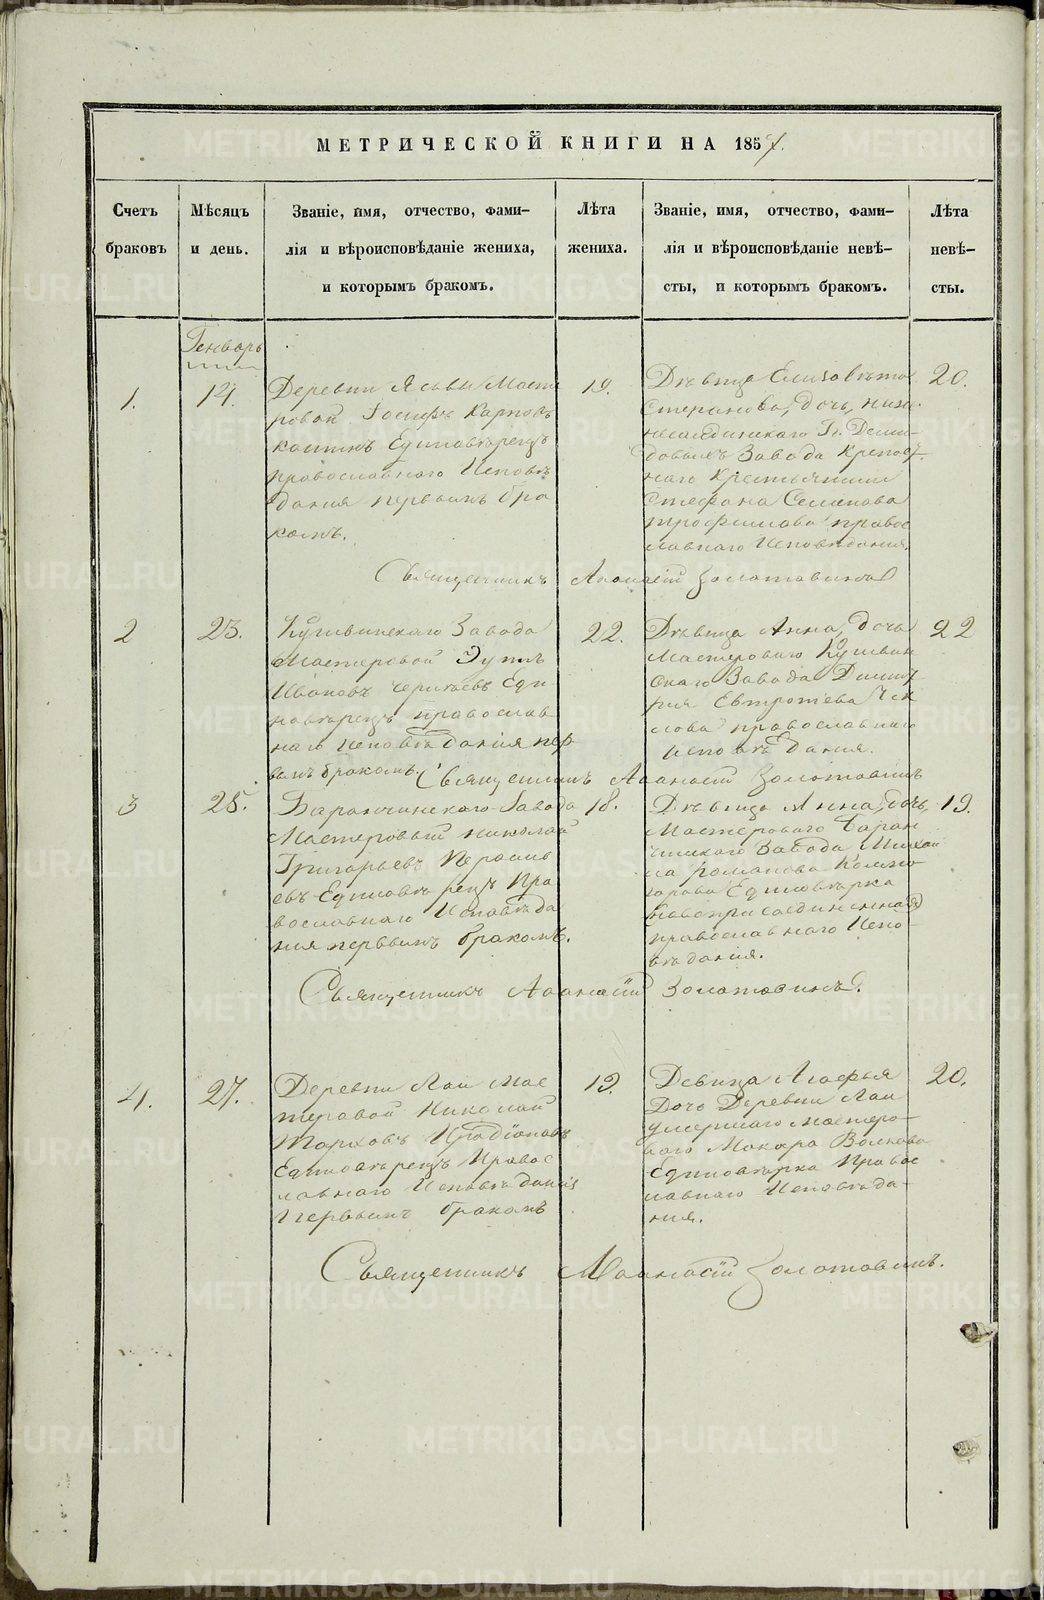 МЕТРИЧЕСКОЙ КНИГИ НА 1857.
Счетъ браковъ
Мѣсяцъ и день.
Званіе, имя, отчество, фами-
лія и вѣроисповѣданіе жениха,
и которымъ бракомъ.
Лѣта жениха.
Званіе, имя, отчество, фами-
лія и вѣроисповѣданіе невѣ-
сты, и которымъ бракомъ.
Лѣта невѣ-
сты.
Генварь
1.
14.
Деревни Ясьвы Масте
ровой Іосифъ Карповъ
Единовѣрецъ
православнаго Исповѣ
данія первымъ бра
комъ.
19.
Дѣвица Елизавѣта
Степанова, дочь, нижне
салдинскаго Гг. Деми-
довыхъ Завода Крепост
наго Крестьянина
Стефана Семенова
трофимова правос
лавнаго Исповѣданія.
20.
Священникъ Афанасій Золотавинъ
2
23.
Кушвинскаго Завода
Мастеровой
Ивановъ Еди
новѣрецъ православ
наго исповѣданія пер
вымъ бракомъ.
22.
Дѣвица Анна, дочь
Мастероваго Кушвин
скаго Завода Димит
рія
православнаго
исповѣданія.
22
Священникъ Афанасій Золотавинъ
3
25.
Баранчинскаго Завода
Мастеровый Николай
Григорьевъ
евъ Единовѣрецъ Пра
вославнаго Исповѣда
нія первымъ бракомъ.
18.
Дѣвица Анна, дочь,
Мастероваго Баран
чинскаго Завода Михаи
ла романова
Единовѣрка
Новоприсоединенная
православнаго Испо-
вѣданія.
19.
Священникъ Афанасій Золотавинъ.
4.
27.
Деревни Лаи Мас
теровой Николай
Тарховъ
Единовѣрецъ Правос
лавнаго Исповѣданія
Первымъ бракомъ
19.
Девица Агафья
Дочь Деревни Лаи
умершаго Мастеро-
ваго Макара Волкова
Единовѣрка Правос
лавнаго Исповѣда-
нія.
20.
Священникъ Афанасій Золотавинъ.
METRIKI.GASO-URAL.RU